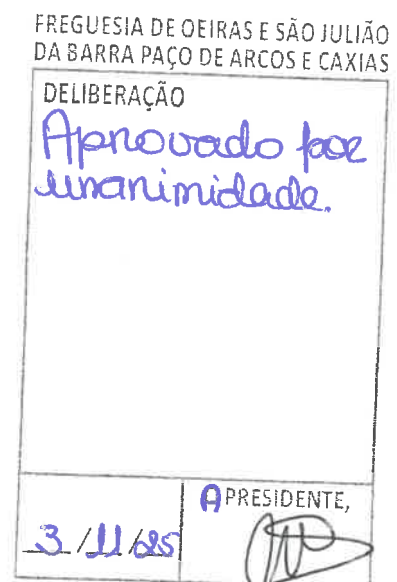 FREGUESIA DE OEIRAS E SÃO JULIÃO
DA BARRA PAÇO DE ARCOS E CAXIAS
DELIBERAÇÃO
Aprovado por
unanimidade.
A PRESIDENTE,
3 / 11 / 25